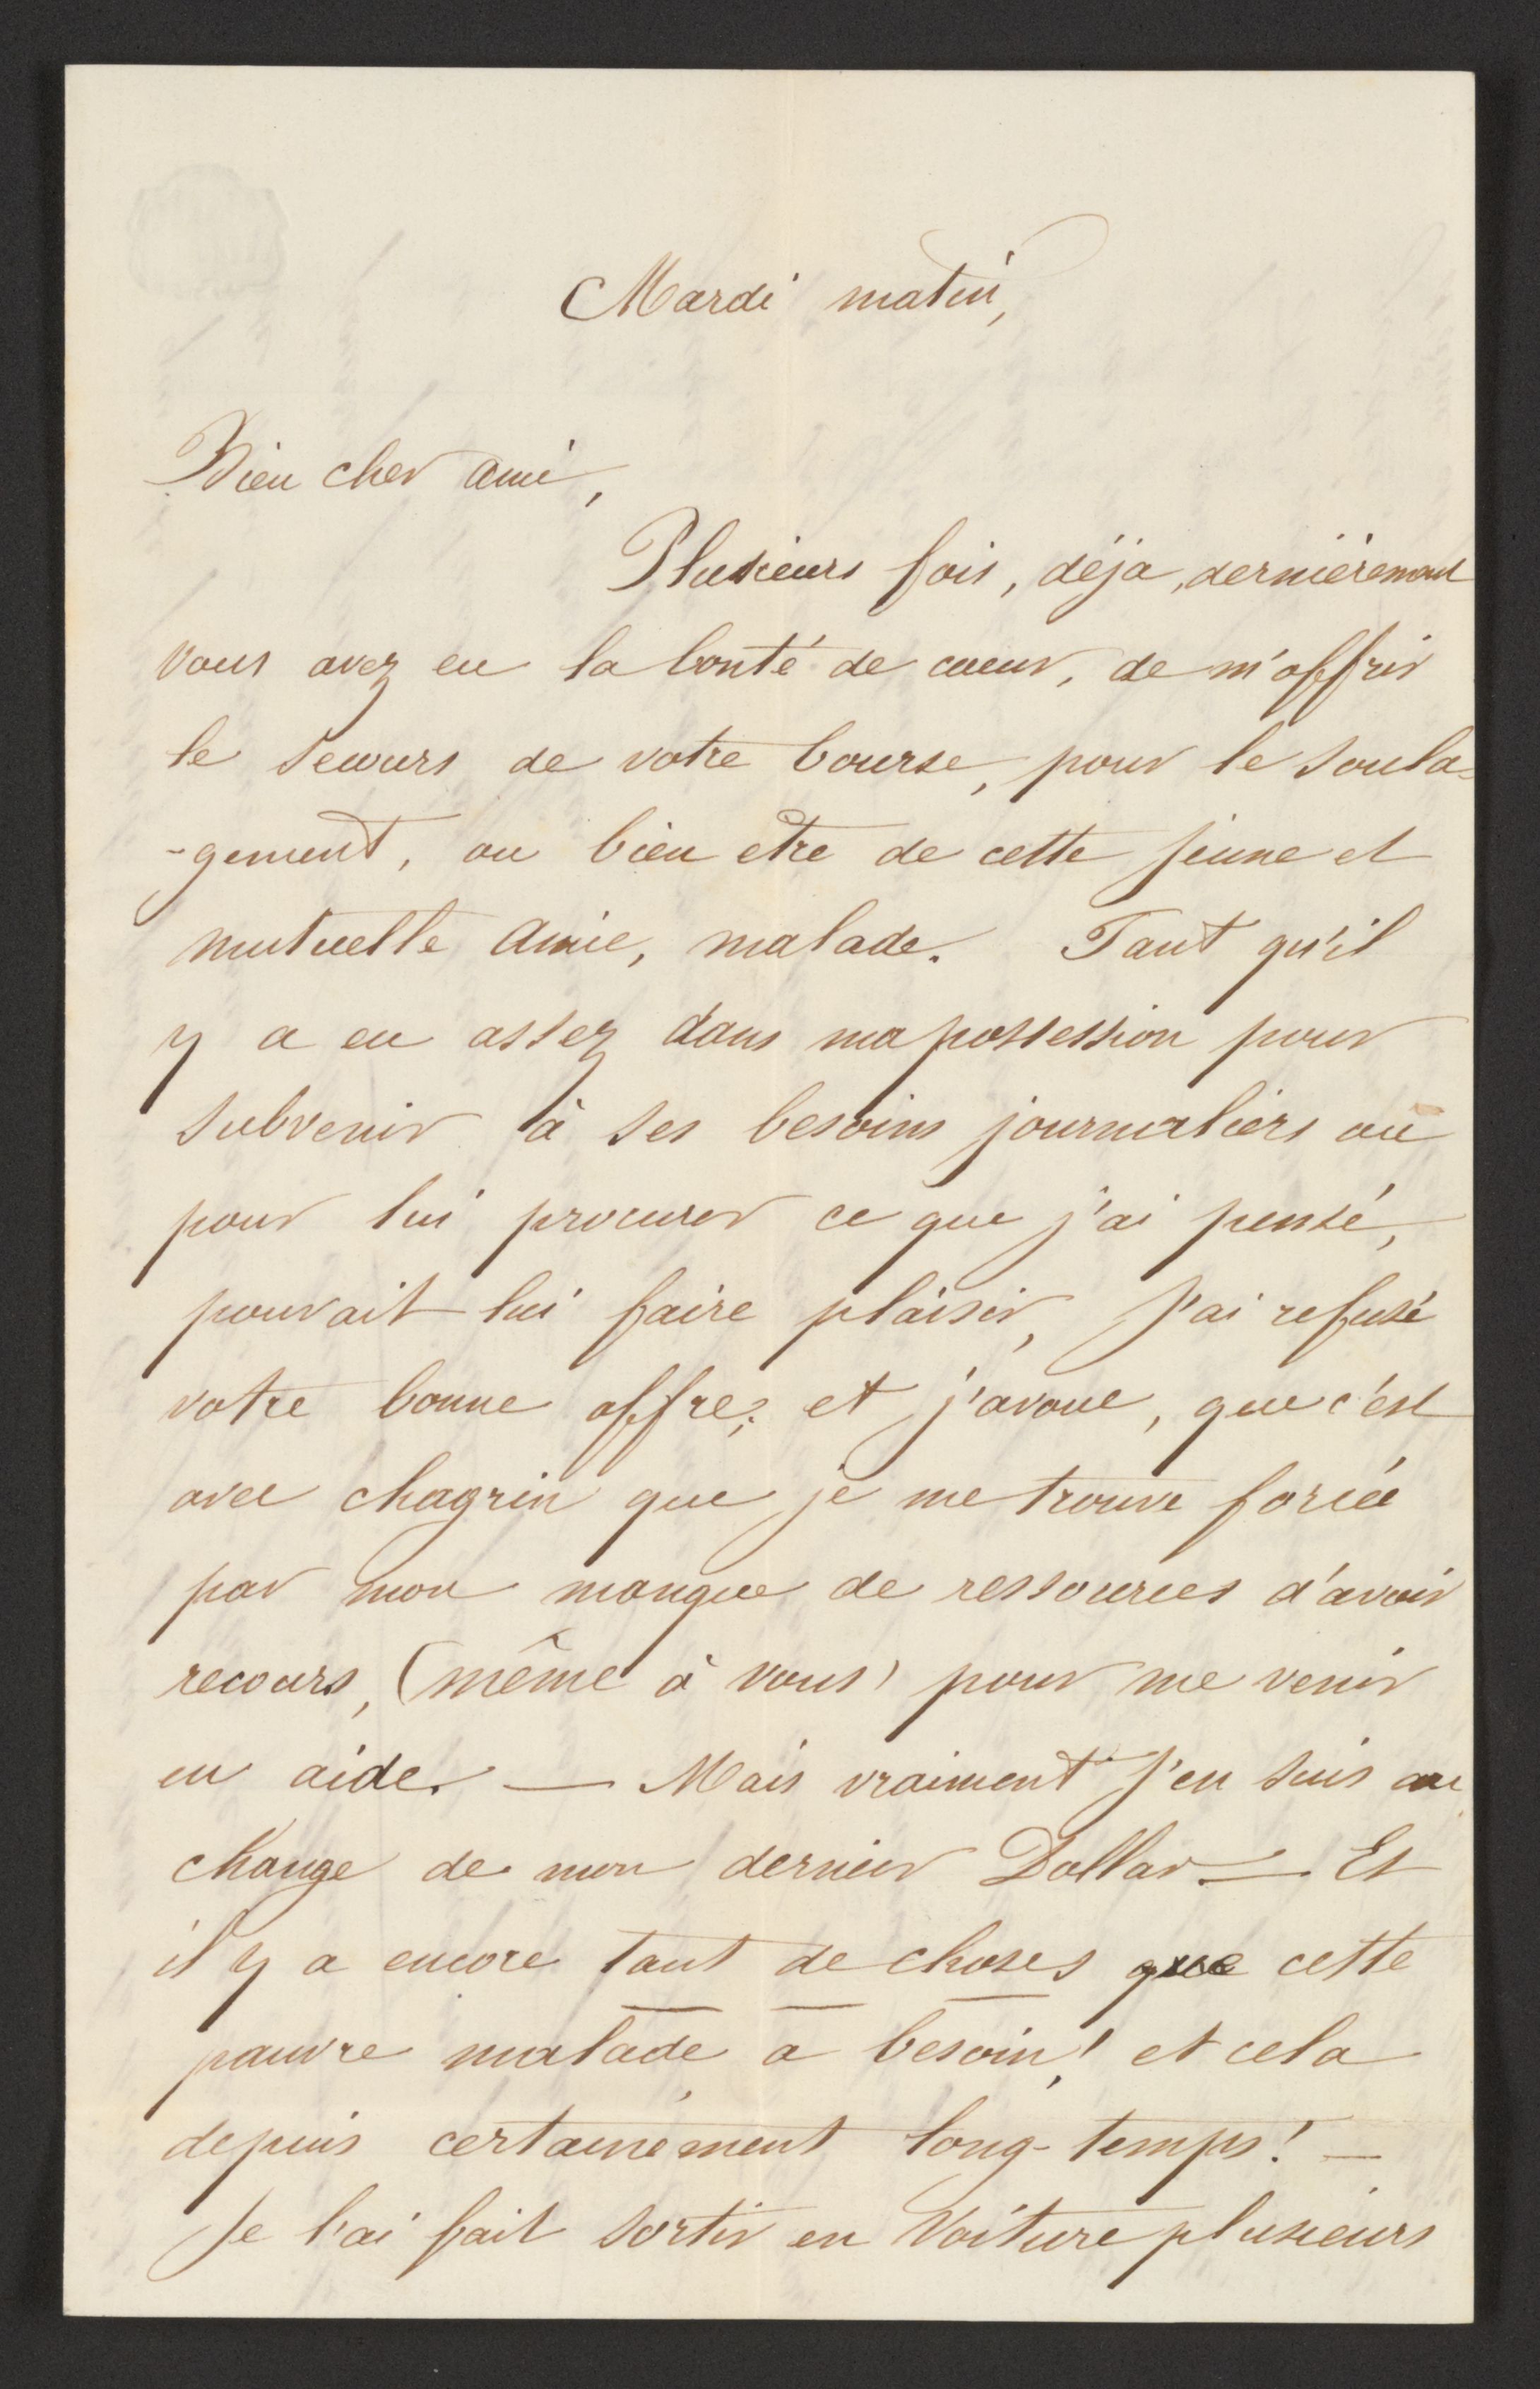 Mardi matin,
Bien cher ami,
Plusieurs fois, déja, dernièrement
vous avez eu la bonté de coeur, de m'offrir
le secours de votre bourse, pour le soula-
-gement, ou bien etre de cette jeune et
mutuelle amie, malade. Tant qu'il
y a eu assez dans ma possession pour
subvenir à ses besoins journaliers ou
pour lui procurer ce que j'ai pensé,
pouvait lui faire plaisir, j'ai refusé
votre bonne offre; et j'avoue, que c'est
avec chagrin que je me trouve forcée
par mon manque de ressources d'avoir
recours, (même à vous) pour me venir
en aide. — Mais vraiment j'en suis au
change de mon dernier Dollar. — Et
il y a encore tant de choses que cette
pauvre malade a besoin! et cela
depuis certainement long-temps! —
Je l'ai fait sortir en voiture plusieurs